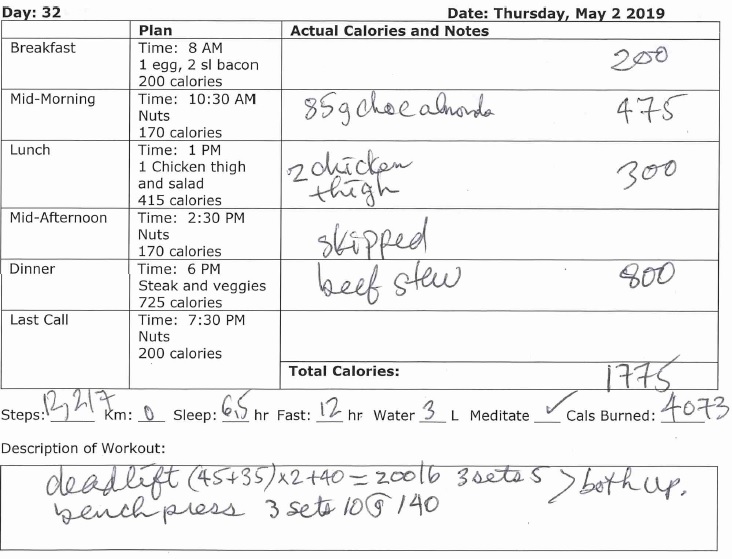 Day: 32 Date: Thursday, May 2 2019
Plan Actual Calories and Notes
Breakfast Time: 8 AM 200
1 egg, 2 sl bacon
200 calories
Mid-Morning Time: 10:30 AM 85g choc almonds 475
Nuts
170 calories
Lunch Time: 1 PM 2 chicken 300
1 Chicken thigh thigh
and salad
415 calories
Mid-Afternoon Time: 2:30 PM
Nuts skipped
170 calories
Dinner Time: 6 PM beef stew 800
Steak and veggies
725 calories
Last Call Time: 7:30 PM
Nuts
200 calories
Total Calories: 1775
Steps: 12,217 Km: 0 Sleep: 6.5 hr Fast: 12 hr Water 3 L Meditate ✓ Cals Burned: 4073
Description of Workout:
deadlift (45+35)x2+40 = 200lb 3 sets 5 > both up.
bench press 3 sets 10 @ 140